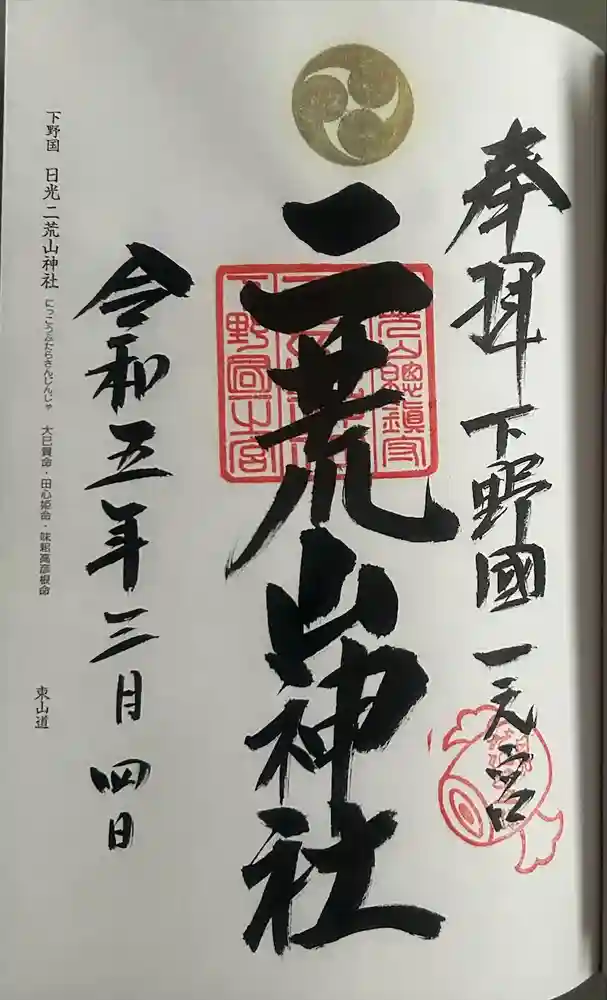 奉拝 下野國 一之宮
二荒山神社
令和五年三月四日
下野国 日光二荒山神社 にっこうふたらさんじんじゃ 大己貴命・田心姫命・味耜高彦根命 東山道